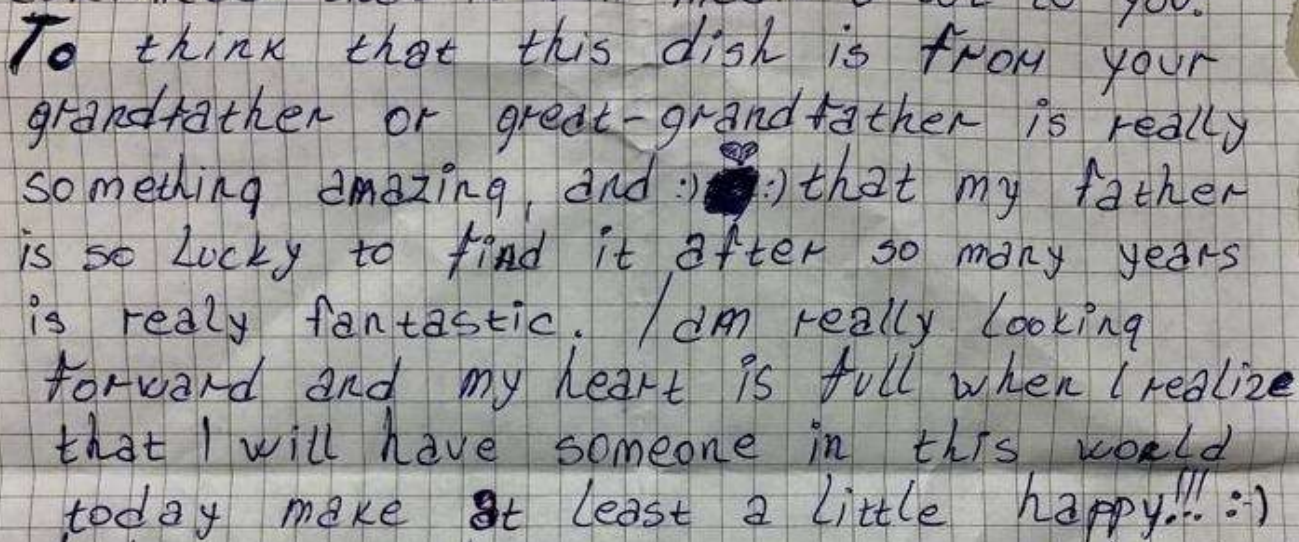 to you.
To think that this dish is from your
grandfather or great-grandfather is really
something amazing, and :) :) that my father
is so lucky to find it after so many years
is realy fantastic. I am really looking
forward and my heart is full when I realize
that I will have someone in this world
today make at least a little happy!!! :-)